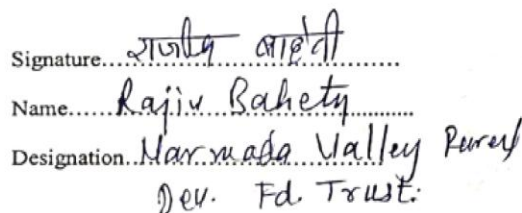 Signature राजीव बाहेती
Name Rajiv Bahety
Designation Narmada Valley Rural
Dev. Fd. Trust.